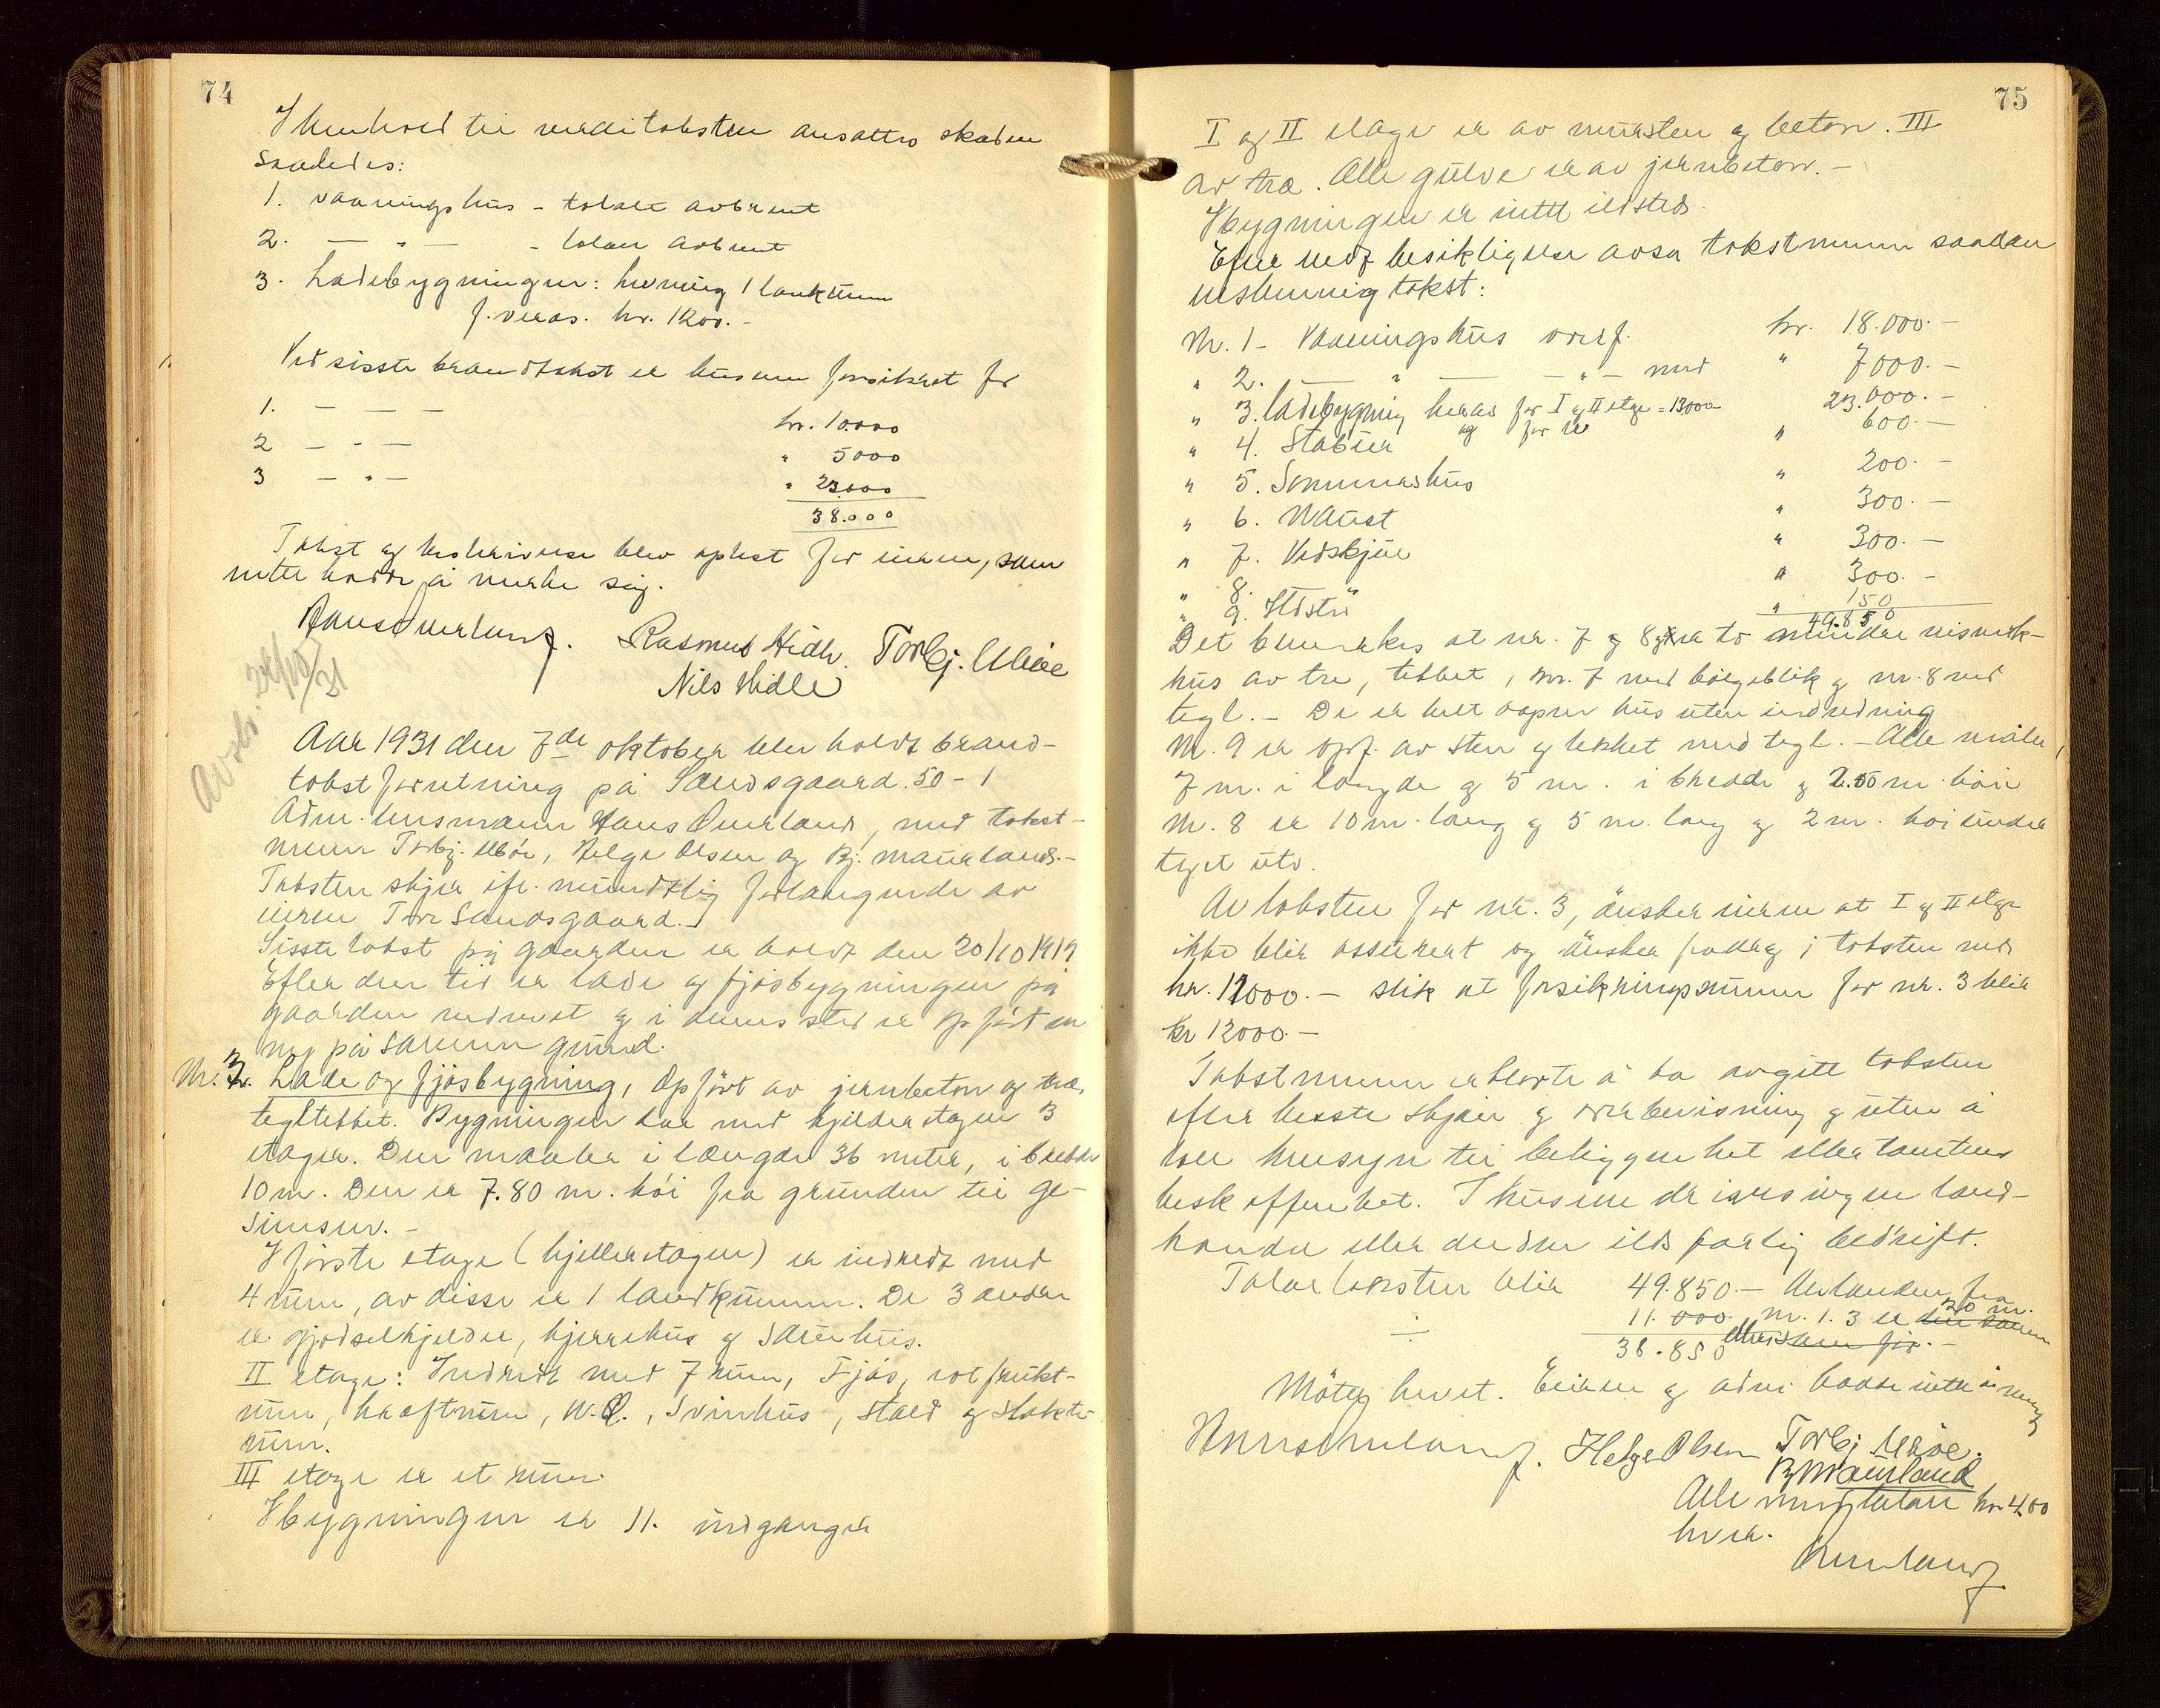 74
I henhold til verditaksten ansattes skaden
saaledes:
1. vaaningshus - totalt avbrent
2. — " — - totalt avbrent
3. Ladebygningen: hvoving 1 landkum
f. veras. kr. 1200.-
Ved sisste brandtakst er husene forsikret for
1. — — — kr. 10000
2 — - — " 5000
3 — " — " 23000
38.000
Takst og beskrivelse blev oplest for eieren, som
intet hadde å merke sig.
Hans Overland. Rasmus Hidle. Torbj. Meltveit
Nils Hidle
Avsk. 28/10 31
Aar 1931 den 7de oktober blev holdt brand-
takstforretning på Sandsgaard. 50-1
Adm. lensmann Hans Overland, med takst-
menn Torbj. Ubøe, Helge Olsen og Bj. Maurland.-
Taksten skjer efr. mundtlig forlangende av
eieren Tore Sandsgaard.-
Sisste takst på gaarden er holdt den 20/10 1919
Efter den tid er lade og fjøsbygningen på
gaarden nedrevet og i dennes sted er opført en
ny på samme grund.
Nr. 3. Lade og fjøsbygning, opført av jernbeton og træ,
tegltekket. Bygningen har med kjelderetagen 3
etager. Den maaler i længde 36 meter, i bredde
10 m. Den er 7.80 m. høi fra grunden til ge-
simsen.-
I første etage (kjelleretagen) er indredt med
4 rum, av disse er 1 landkummen. De 3 andre
er gjødselkjelder, kjerrehus og sauehus.
II etage: Indredt med 7 rum, Fjøs, rotfrukt-
rum, kraftrum, W.C., Svinhus, stald og slakte-
rum.
III etage er et rum.
I bygningen er 11. indganger
75
I og II etage er av mursten og beton. III
av træ. Alle gulve er av jernbeton.-
I bygningen er intet ildsted.
Efter nedf besiktigelse avsa takstmenn saadan
enstemmig takst:
Nr. 1 - Vaaningshus overf. kr. 18.000.-
" 2. — " — — " — med " 7000.-
" 3. ladebygning herav for I og II etage = 13000- 23.000.-
" 4. Stabur " 600.-
" 5. Sommerhus " 200.-
" 6. Naust " 300.-
" 7. Vedskjul " 300.-
" 8. " 300.-
" 9. Ildstø " 150
49.850
Det bemerkes at nr. 7 og 8 er to mindre
hus av tre, tekket, nr. 7 med bølgeblik og nr. 8 med
tegl.- De er helt aapne hus uten indredning
Nr. 9 er opf. av sten og tekket med tegl.- Alle måler
7 m. i længde og 5 m. i bredde og 2.50 m. høi
Nr. 8 er 10 m. lang og 5 m. lang og 2 m. høi under
taget utv.
Av taksten for nr. 3, ønsker eieren at I og II etge
ikke blir assurert og ønsker fradrag i taksten med
kr. 11000.- slik at forsikringssummen for nr. 3 blir
kr 12000.-
Takstmenn erklærte å ha avgitt taksten
efter beste skjøn og overbevisning og uten å
ta hensyn til beliggenhet eller tomtens
beskaffenhet. I husene drives ingen land-
handel eller anden ildsfarlig bedrift.
Totaltaksten blir 49.850.- Avstanden fra
÷ 11.000, nr. 1. 3 er den samme 20 m.
38.850 ellers som før.-
Møtet hevet. Eieren og adm. hadde intet å merke
Hans Overland. Helge Olsen Torbj. Ubøe.
Bj Maurland
Alle medtatere kr. 4,00
hver.
Overland